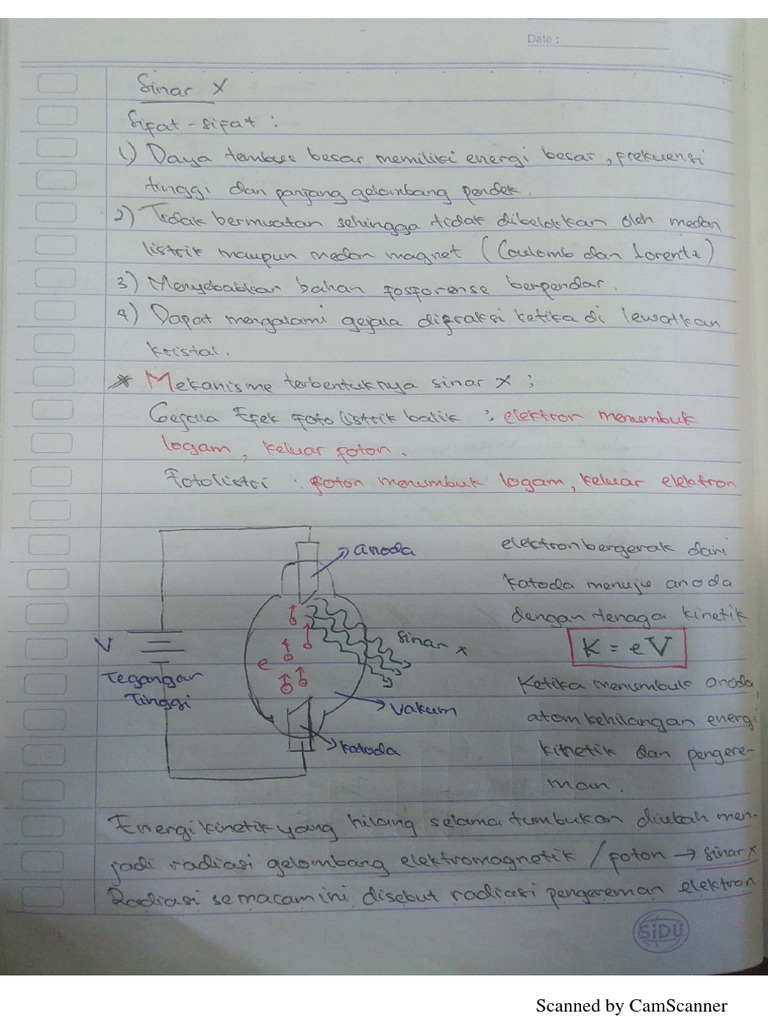 Date :
Sinar X
Sifat - sifat :
1) Daya tembus besar memiliki energi besar, frekuensi
tinggi dan panjang gelombang pendek.
2) Tidak bermuatan sehingga tidak dibelokkan oleh medan
listrik maupun medan magnet (Coulomb dan Lorentz)
3) Menyebabkan bahan fosforense berpendar.
4) Dapat mengalami gejala difraksi ketika di lewatkan
kristal.
* Mekanisme terbentuknya sinar X :
Gejala Efek foto listrik balik : elektron menumbuk
logam, keluar foton.
Fotolistri : foton menumbuk logam, keluar elektron
anoda
elektron bergerak dari
katoda menuju anoda
dengan tenaga kinetik
V
e
sinar x
K = eV
Tegangan
Tinggi
Ketika menumbuk anoda,
vakum
atom kehilangan energi
katoda
kinetik dan pengere-
man.
Energi kinetik yang hilang selama tumbukan diubah men-
jadi radiasi gelombang elektromagnetik / foton → sinar x
Radiasi semacam ini disebut radiasi pengereman elektron
SIDU
Scanned by CamScanner